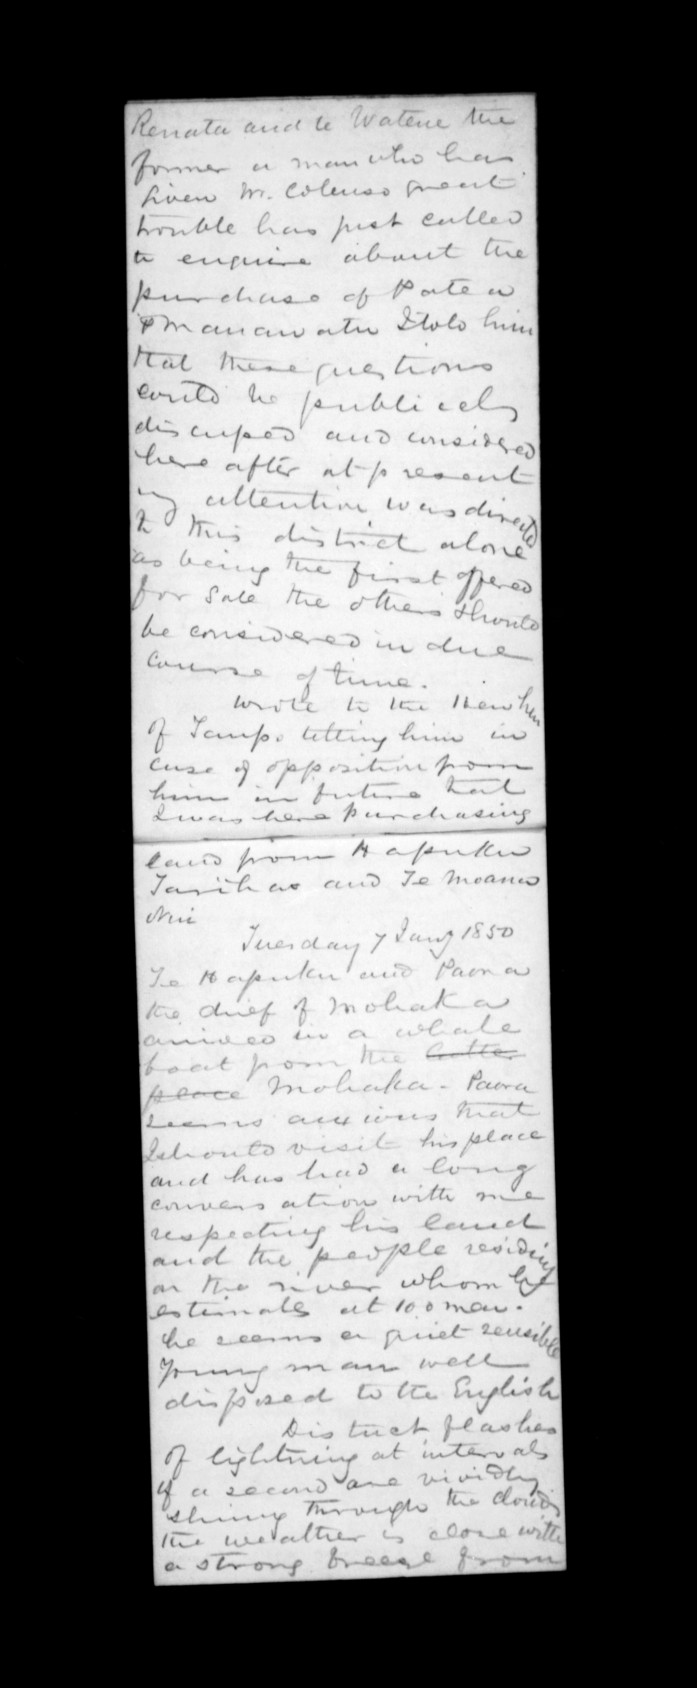 Renata and te Watene the
former a man who has
given Mr. Colenso great
trouble has just called
to enquire about the
purchase of Patea
& Manawatu I told him
that these questions
could be publicly
discussed and considered
here after at present
my attention was directed
to this district alone
as being the first offered
for sale the others should
be considered in due
course of time.
Wrote to the
of Taupo telling him in
case of opposition from
him in future that
I was here purchasing
land from Hapuku
Tariha and Te Moana
Nui
Tuesday 7 Jany 1850
Te Hapuku and Paora
the chief of Mohaka
arrived in a whale
boat from the
place Mohaka - Paora
seems anxious that
I should visit his place
and has had a long
conversation with me
respecting his land
and the people residing
on the river whom he
estimates at 100 men.
he seems a quiet sensible
young man well
disposed to the English
Distinct flashes
of lightning at intervals
of a second are vividly
shining through the clouds
the weather is close with
a strong breeze from